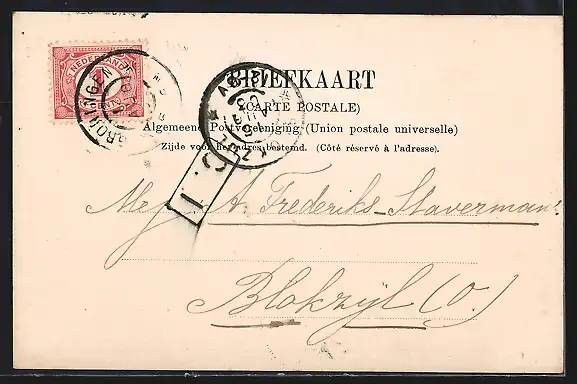 NEDERLAND
GRONINGEN
BRIEFKAART
(CARTE POSTALE)
Algemeene Postvereeniging (Union postale universelle)
Zijde voor het adres bestemd. (Côté réservé à l'adresse).
A. Frederiks-Staverman
Blokzijl (O.)